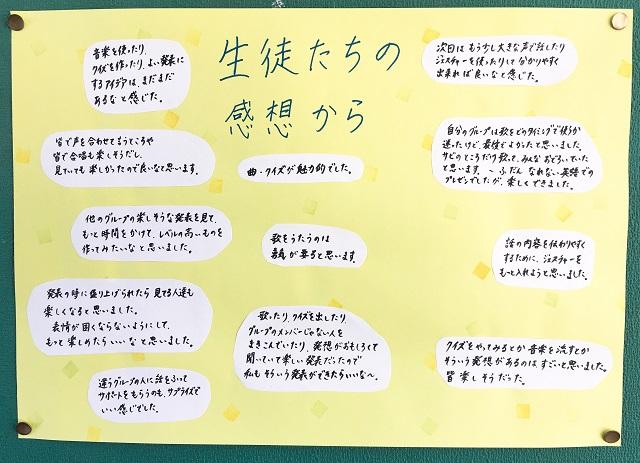 生徒たちの
感想から
音楽を使ったり、
クイズを作ったり、よい発表に
するアイデアは、まだまだ
あるなと感じた。
次回は もう少し大きな声で話したり
ジェスチャーを使ったりして 分かりやすく
出来れば良いなと感じた。
皆で声を合わせて言うところや
皆で合唱も楽しそうだし、
見ていても 楽しかったので良いなと思います。
曲・クイズが魅力的でした。
自分のグループは歌をどのタイミングで使うか
迷ったけど、最後でよかったと思いました。
サビのところだけ歌って、みんなおどろいていた
と思います。〜ふだん なれない英語での
プレゼンでしたが、楽しくできました。
他のグループの楽しそうな発表を見て、
もっと時間をかけて、レベルの高いものを
作ってみたいなと思いました。
歌をうたうのは
勇気が要ると思います
話の内容を伝わりやすく
するために、ジェスチャーを
もっと入れようと思いました。
発表の時に盛り上げられたら 見てる人達も
楽しくなると思いました。
表情が固くならないようにして、
もっと楽しめたらいいなと思いました。
歌ったり、クイズを出したり、
グループのメンバーじゃない人を
まきこんでいたり、発想がおもしろくて
聞いていて楽しい発表だったので
私もそういう発表ができたらいいな〜。
クイズをやってみるとか 音楽を流すとか
そういう発想があるのは すごいと思いました。
皆楽しそうだった。
違うグループの人に話をふって
サポートをもらうのも、サプライズで
いい感じでした。